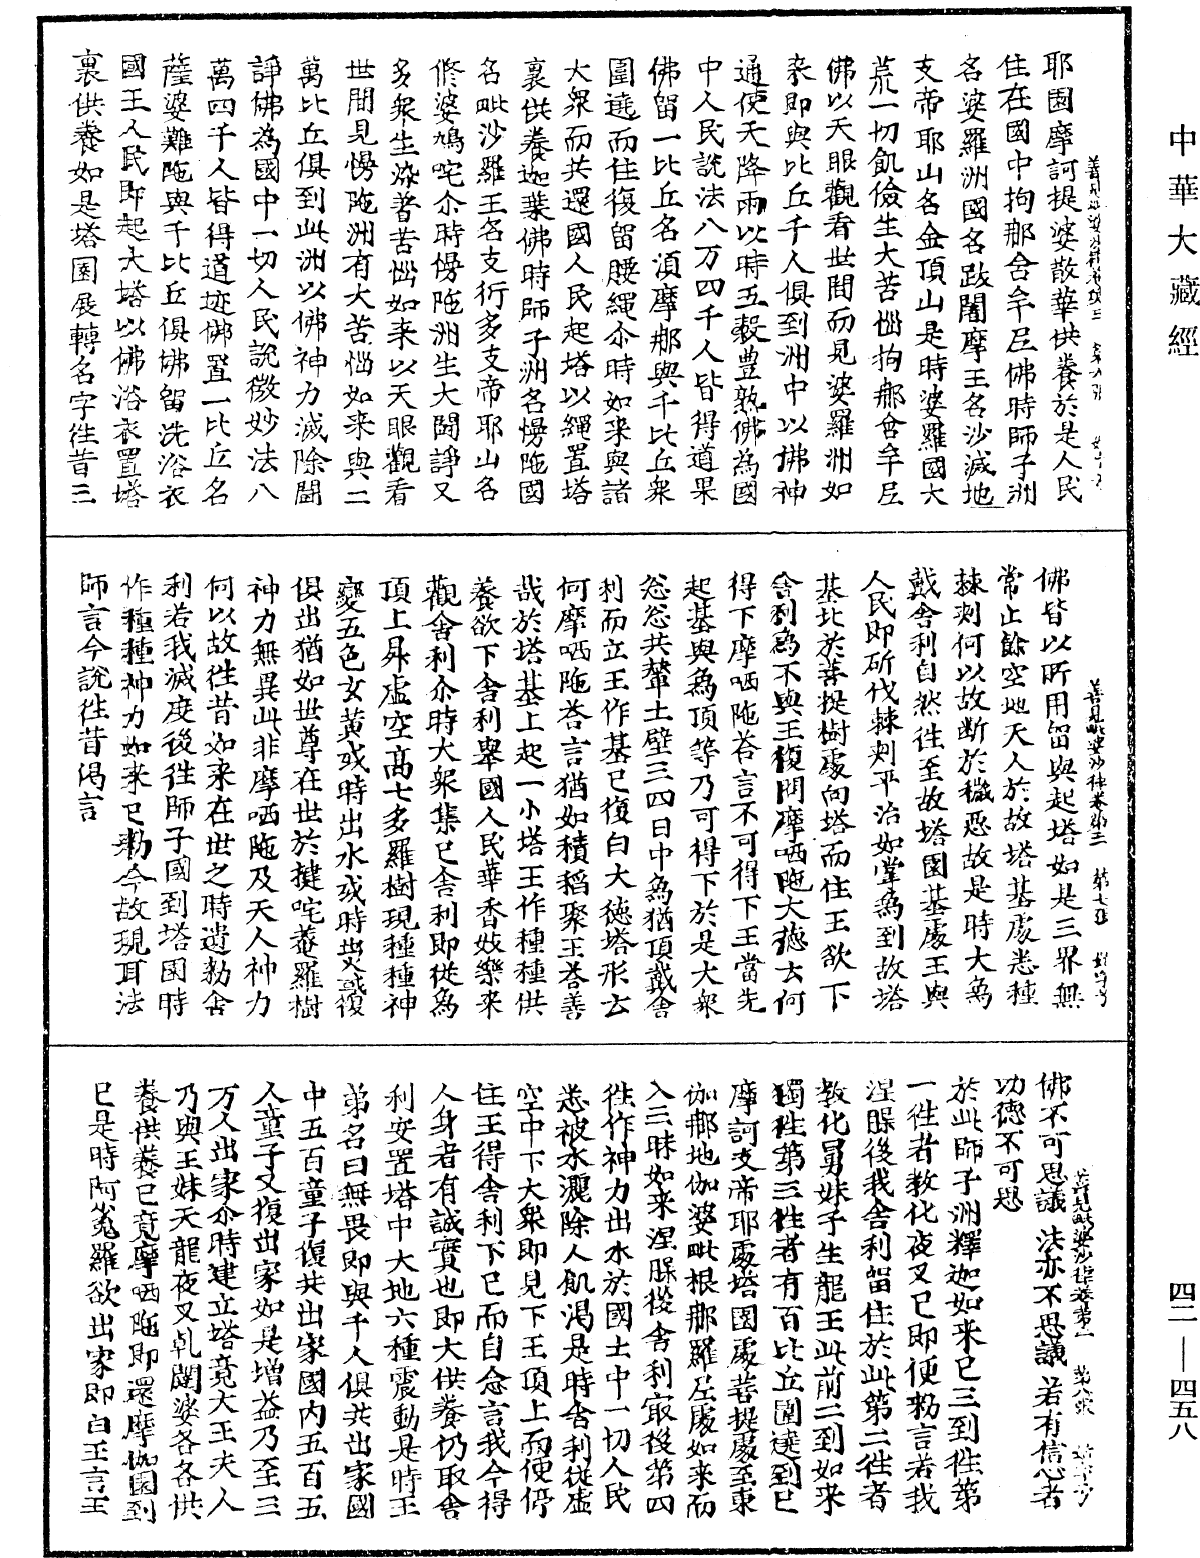 中華大藏經
四二—四五八
耶園摩訶提婆散華供養於是人民
住在國中拘那含牟尼佛時師子洲
名婆羅洲國名跋闍摩王名沙滅地
支帝耶山名金頂山是時婆羅國大
荒一切飢儉生大苦惱拘那含牟尼
佛以天眼觀看世間而見婆羅洲如
來即與比丘千人俱到洲中以佛神
通使天降雨以時五穀豊熟佛為國
中人民說法八万四千人皆得道果
佛留一比丘名湏摩那與千比丘衆
圍遶而住復留腰繩尒時如来與諸
大衆而共還國人民起塔以繩置塔
裏供養迦葉佛時師子洲名慢陁國
名毗沙羅王名支衍多支帝耶山名
修婆鳩咤尒時慢陁洲生大鬪諍又
多衆生染著苦惱如来以天眼觀看
世間見慢陁洲有大苦惱如来與二
萬比丘俱到此洲以佛神力滅除鬪
諍佛為國中一切人民說微妙法八
萬四千人皆得道迹佛置一比丘名
薩婆難陁與千比丘俱佛留洗浴衣
國王人民即起大塔以佛浴衣置塔
裏供養如是塔園展轉名字往昔三
善見毗婆沙律卷第三 第七張
佛皆以所用留與起塔如是三界無
常止餘空地天人於故塔基處悉種
棘刾何以故断於穢惡故是時大為
戴舍利自然往至故塔園基處王與
人民即斫伐棘刾平治如掌為到故塔
基北於菩提樹處向塔而住王欲下
舍利為不與王復問摩哂陁大德云何
得下摩哂陁荅言不可得下王當先
起基與為頂等乃可得下於是大衆
忩忩共輦土壁三四日中為猶頂戴舍
利而立王作基已復白大德塔形云
何摩哂陁荅言猶如積稻聚王荅善
哉於塔基上起一小塔王作種種供
養欲下舍利舉國人民華香妓樂来
觀舍利尒時大衆集已舍利即從為
頂上昇虛空高七多羅樹現種種神
變五色玄黃或時出水或時出火或復
俱出猶如世尊在世於揵咤菴羅樹
神力無異此非摩哂陁及天人神力
何以故往昔如来在世之時遺勑舍
利若我滅度後往師子國到塔園時
作種種神力如来已勑今故現耳法
師言今說往昔偈言
善見毗婆沙律卷第三 第八張
佛不可思議 法亦不思議 若有信心者
功德不可思
於此師子洲釋迦如来已三到往第
一往者教化夜叉已即便勑言若我
涅䏶後我舍利留住於此第二往者
教化舅妹子生龍王此前二到如来
獨往第三往者有百比丘圍遶到已
摩訶支帝耶處塔園處菩提處至東
伽那地伽婆毗根那羅左處如来而
入三昧如来涅䏶後舍利冣後第四
往作神力出水於國土中一切人民
悉被水灑除人飢渴是時舍利從虛
空中下大衆即見下王頂上而便停
住王得舍利下已而自念言我今得
人身者有誠實也即大供養仍取舍
利安置塔中大地六種震動是時王
弟名曰無畏即與千人俱共出家國
中五百童子復共出家國内五百五
人童子又復出家如是增益乃至三
万人出家尒時建立塔竟大王夫人
乃與王妹天龍夜叉乹闥婆各各供
養供養已竟摩哂陁即還摩伽園到
已是時阿㝹羅欲出家即白王言王